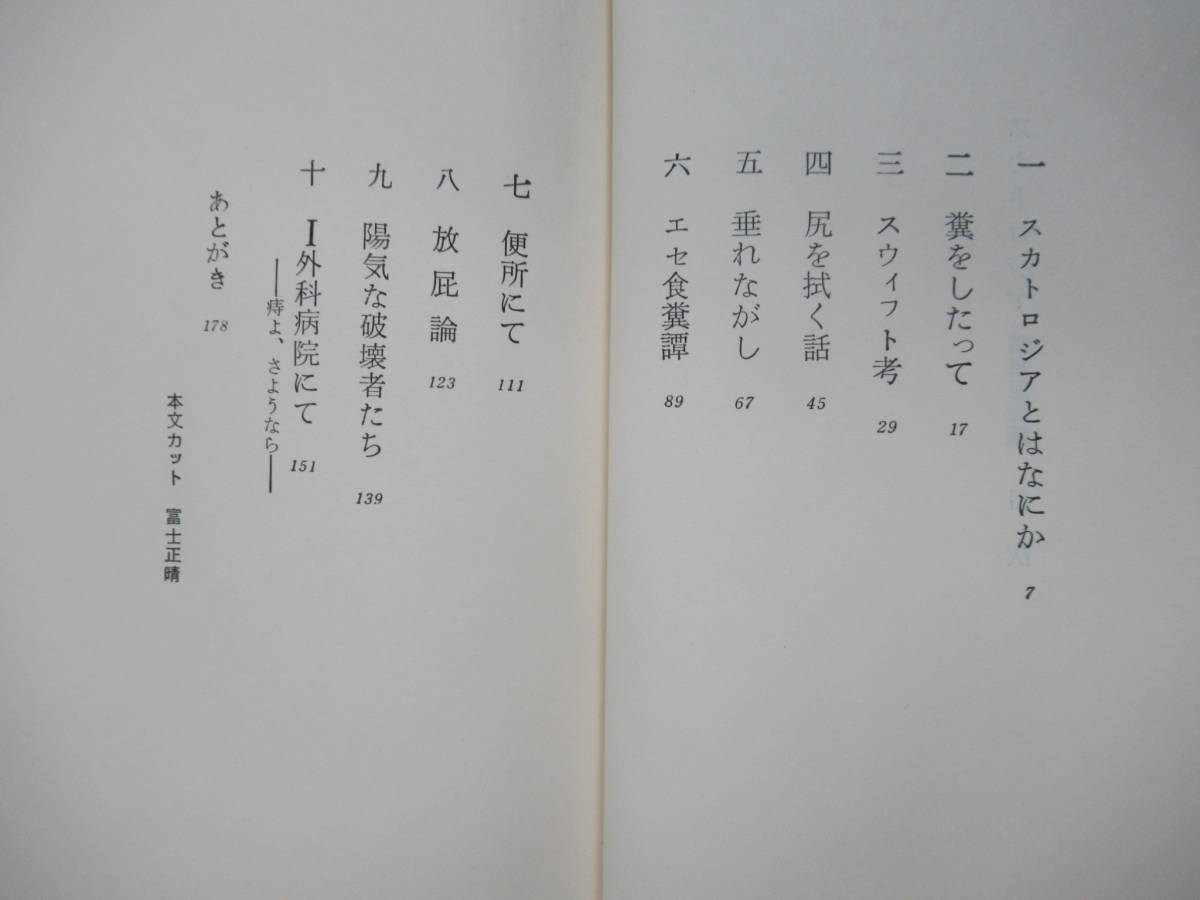 一 スカトロジアとはなにか 7
二 糞をしたって 17
三 スウィフト考 29
四 尻を拭く話 45
五 垂れながし 67
六 エセ食糞譚 89
七 便所にて 111
八 放屁論 123
九 陽気な破壊者たち 139
十 I外科病院にて 151
——痔よ、さようなら——
あとがき 178
本文カット 富士正晴